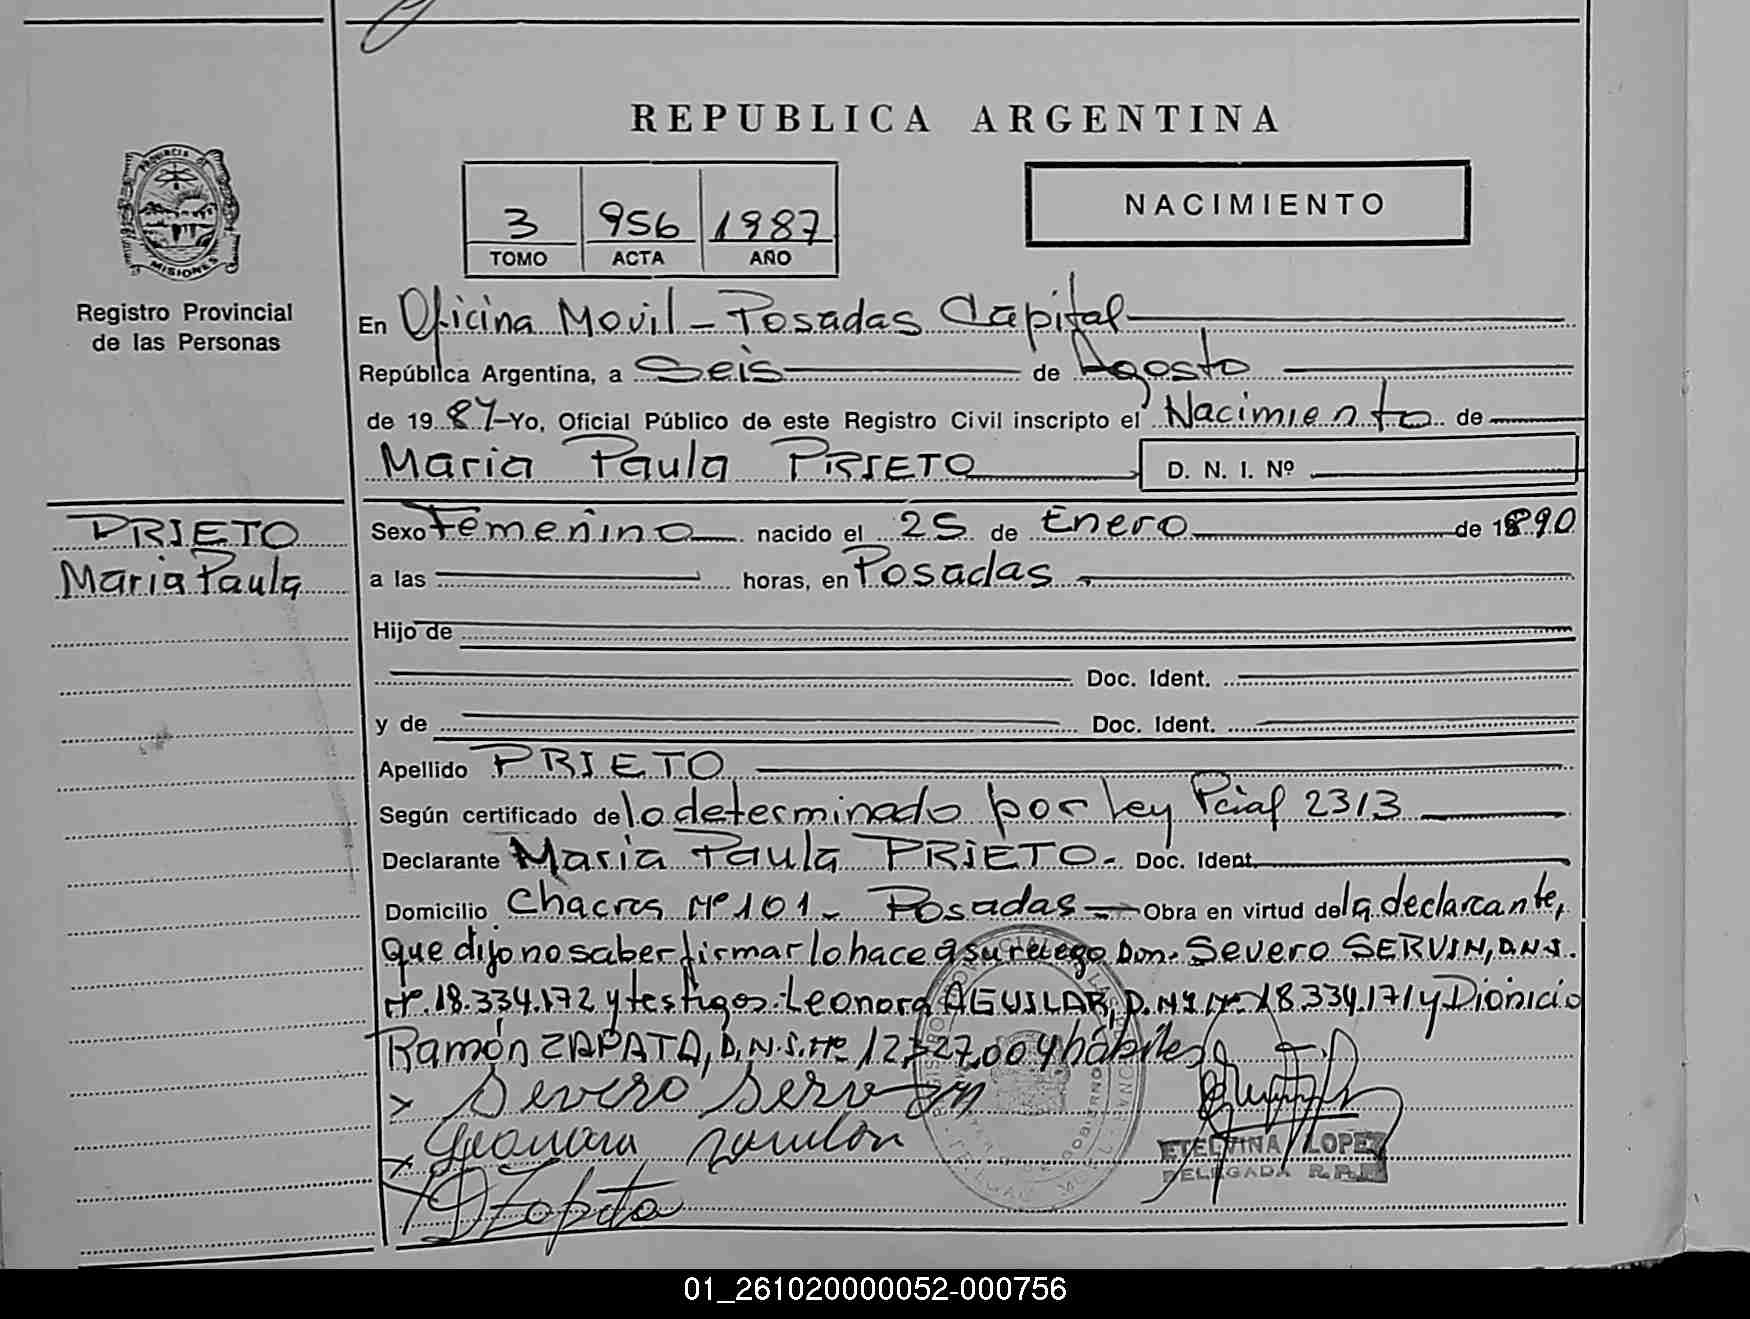 REPUBLICA ARGENTINA
PROVINCIA DE
MISIONES
Registro Provincial
de las Personas
3 956 1987
TOMO ACTA AÑO
NACIMIENTO
En Oficina Movil - Posadas Capital
República Argentina, a Seis de Agosto
de 19 87 Yo, Oficial Público de este Registro Civil inscripto el Nacimiento de
Maria Paula PRIETO D. N. I. Nº
PRIETO
Maria Paula
Sexo Femenino nacido el 25 de Enero de 1890
a las horas, en Posadas
Hijo de
Doc. Ident.
y de Doc. Ident.
Apellido PRIETO
Según certificado de lo determinado por Ley Pcial 2313
Declarante Maria Paula PRIETO.- Doc. Ident.
Domicilio Chacra Nº 101 - Posadas - Obra en virtud de la declarante,
que dijo no saber firmar lo hace a su ruego Don. Severo SERVIN, D.N.I.
Nº 18.334.172 y testigos Leonora AGUILAR, D.N.I. Nº 18.334.171 y Dionicio
Ramón ZAPATA, D.N.I. Nº hábiles
Severo Servin
D Zapata
ETELVINA LOPEZ
DELEGADA R.P.P.
01_261020000052-000756